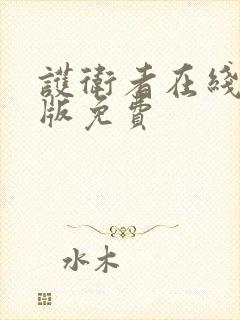 護衛者在綫
版免費
水木